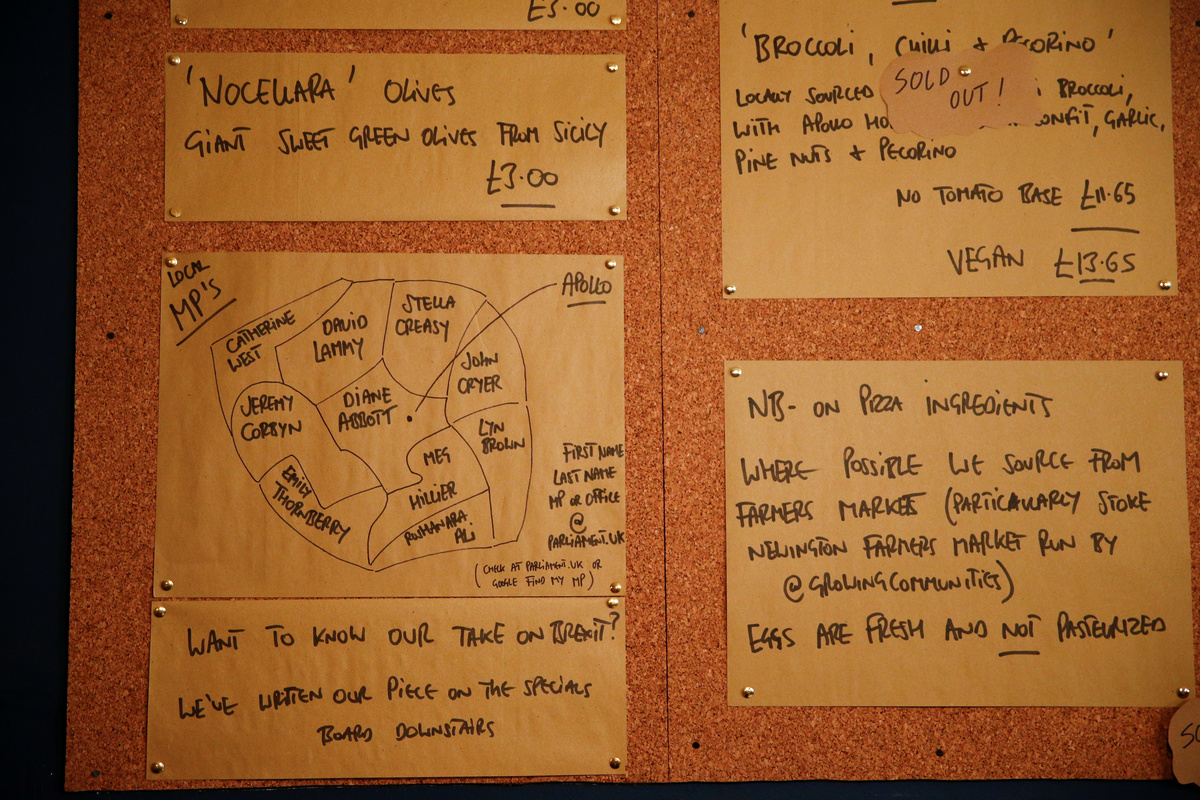 £3.00
'NOCELLARA' OLIVES
GIANT SWEET GREEN OLIVES FROM SICILY
£3.00
LOCAL
MP'S
APOLLO
CATHERINE
WEST
DAVID
LAMMY
STELLA
CREASY
JOHN
CRYER
JEREMY
CORBYN
DIANE
ABBOTT
LYN
BROWN
MEG
HILLIER
EMILY
THORNBERRY
RUSHANARA
ALI
FIRST NAME
LAST NAME
MP OR OFFICE
@
PARLIAMENT.UK
(CHECK AT PARLIAMENT.UK OR
GOOGLE FIND MY MP)
WANT TO KNOW OUR TAKE ON BREXIT?
WE'VE WRITTEN OUR PIECE ON THE SPECIALS
BOARD DOWNSTAIRS
'BROCCOLI, CHILLI + PECORINO'
SOLD
OUT!
LOCALLY SOURCED BROCCOLI,
WITH APOLLO CONFIT, GARLIC,
PINE NUTS + PECORINO
NO TOMATO BASE £11.65
VEGAN £13.65
NB- ON PIZZA INGREDIENTS
WHERE POSSIBLE WE SOURCE FROM
FARMERS MARKETS (PARTICULARLY STOKE
NEWINGTON FARMERS MARKET RUN BY
@GROWINGCOMMUNITIES)
EGGS ARE FRESH AND NOT PASTEURIZED